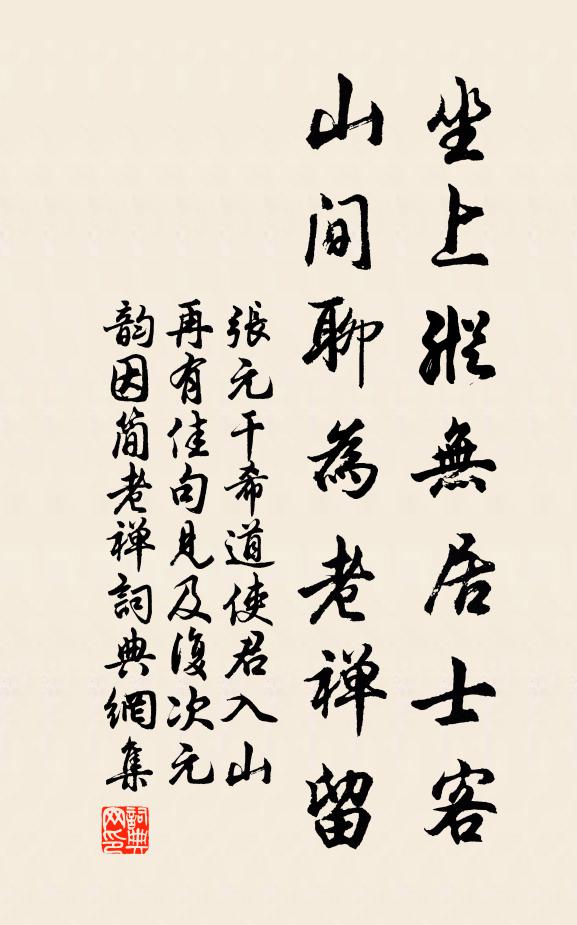 坐上縱無居士客
山間聊為老禅留
張元干希道使君入山
再有佳句見及復次元
韵因簡老禅詞典網集
詞典网印